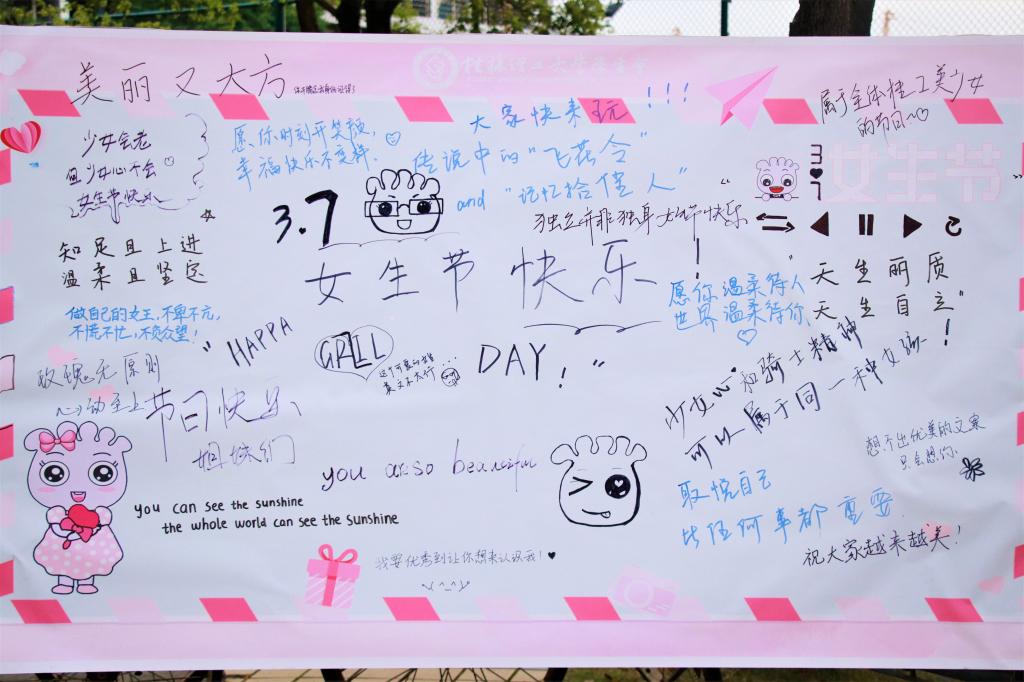 美丽又大方
大家快来玩!!!
传说中的"飞花令"
and "记忆拾佳人"
属于全体桂工美少女
的节日~
少女会老
但少女心不会
女生节快乐
愿你时刻开笑颜,
幸福快乐不变样.
3.7
3
7
女生节
独立并非独身 女生节快乐
知足且上进
温柔且坚定
女生节快乐!
愿你温柔待人
世界温柔待你,
"天生丽质
天生自立"
做自己的女王,不卑不亢,
不慌不忙,不负众望!
"HAPPA
GRIL
DAY!"
玫瑰无原则
心动至上
节日快乐
姐妹们
少女心和骑士精神
可以属于同一种女孩!
you are so beautiful
想不出优美的文案
只会想你.
取悦自己
比任何事都重要.
you can see the sunshine
the whole world can see the sunshine
我要优秀到让你想来认识我!
祝大家越来越美!